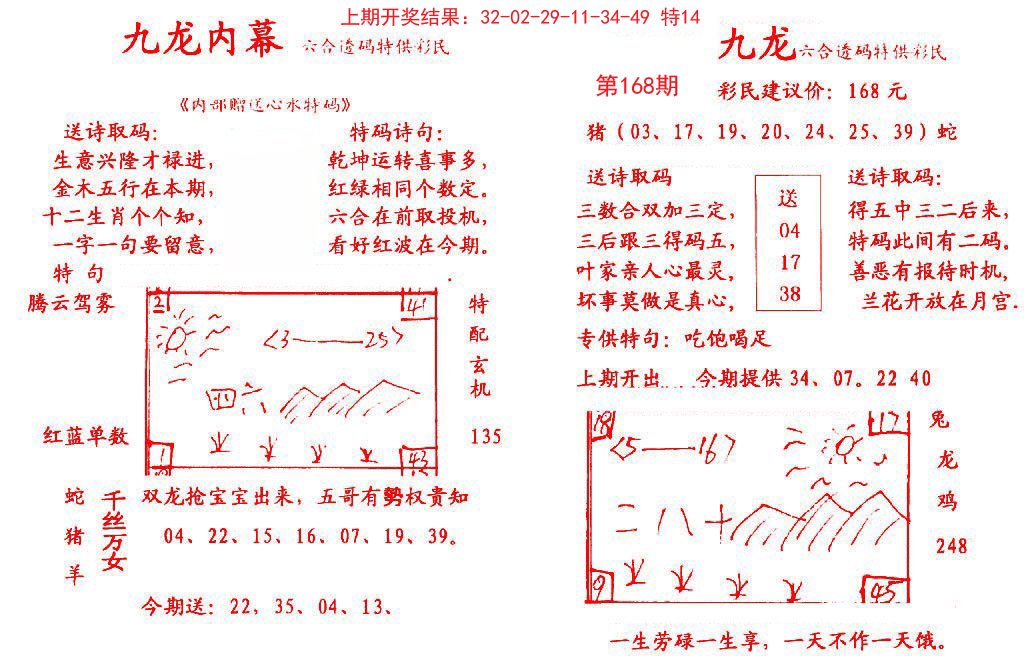 上期开奖结果：32-02-29-11-34-49 特14
九龙内幕 六合透码特供彩民
《内部赠送心水特码》
送诗取码：
生意兴隆才禄进，
金木五行在本期，
十二生肖个个知，
一字一句要留意，
特码诗句：
乾坤运转喜事多，
红绿相同个数定。
六合在前取投机，
看好红波在今期。
特 句
腾云驾雾
红蓝单数
2
41
<3——25>
四六
1
43
特配玄机
135
蛇猪羊
千丝万女
双龙抢宝宝出来，五哥有势权贵知
04、22、15、16、07、19、39。
今期送：22，35、04、13、
九龙 六合透码特供彩民
第168期
彩民建议价：168 元
猪（03、17、19、20、24、25、39）蛇
送诗取码
三数合双加三定，
三后跟三得码五，
叶家亲人心最灵，
坏事莫做是真心，
送
04
17
38
送诗取码：
得五中三二后来，
特码此间有二码。
善恶有报待时机，
兰花开放在月宫.
专供特句：吃饱喝足
上期开出.... 今期提供 34、07。22 40
18
17
<5——16>
二八十
9
45
兔
龙
鸡
248
一生劳碌一生享；一天不作一天饿。